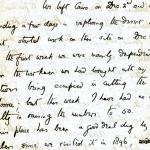 We left Cairo on Dec. 2nd and
ding a few days in exploring the desert
started work on this site on Dec
the first week we were mainly dependent
the workmen we had brought with us
tions being occupied in cutting the
but this week I have had
lty in raising the numbers to 60.
place has been a good deal dug by
since we visited it in 1896,